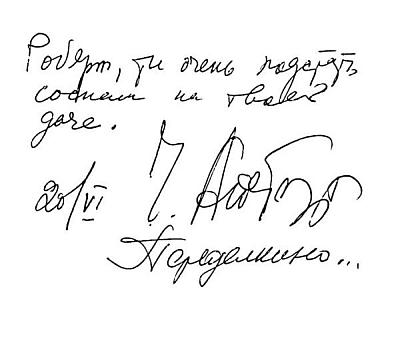 Роберт, ты очень подстать
соснам на твоей
даче.
20/VI Ч. Айтматов
Переделкино...